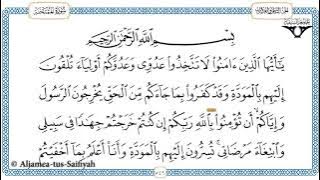 بِسْمِ ٱللَّهِ ٱلرَّحْمَٰنِ ٱلرَّحِيمِ
يَٰٓأَيُّهَا ٱلَّذِينَ ءَامَنُوا۟ لَا تَتَّخِذُوا۟ عَدُوِّى وَعَدُوَّكُمْ أَوْلِيَآءَ تُلْقُونَ
إِلَيْهِم بِٱلْمَوَدَّةِ وَقَدْ كَفَرُوا۟ بِمَا جَآءَكُم مِّنَ ٱلْحَقِّ يُخْرِجُونَ ٱلرَّسُولَ
وَإِيَّاكُمْ أَن تُؤْمِنُوا۟ بِٱللَّهِ رَبِّكُمْ إِن كُنتُمْ خَرَجْتُمْ جِهَٰدًا فِى سَبِيلِى
وَٱبْتِغَآءَ مَرْضَاتِى تُسِرُّونَ إِلَيْهِم بِٱلْمَوَدَّةِ وَأَنَا۠ أَعْلَمُ بِمَآ أَخْفَيْتُمْ
© Aljamea-tus-Saifiyah